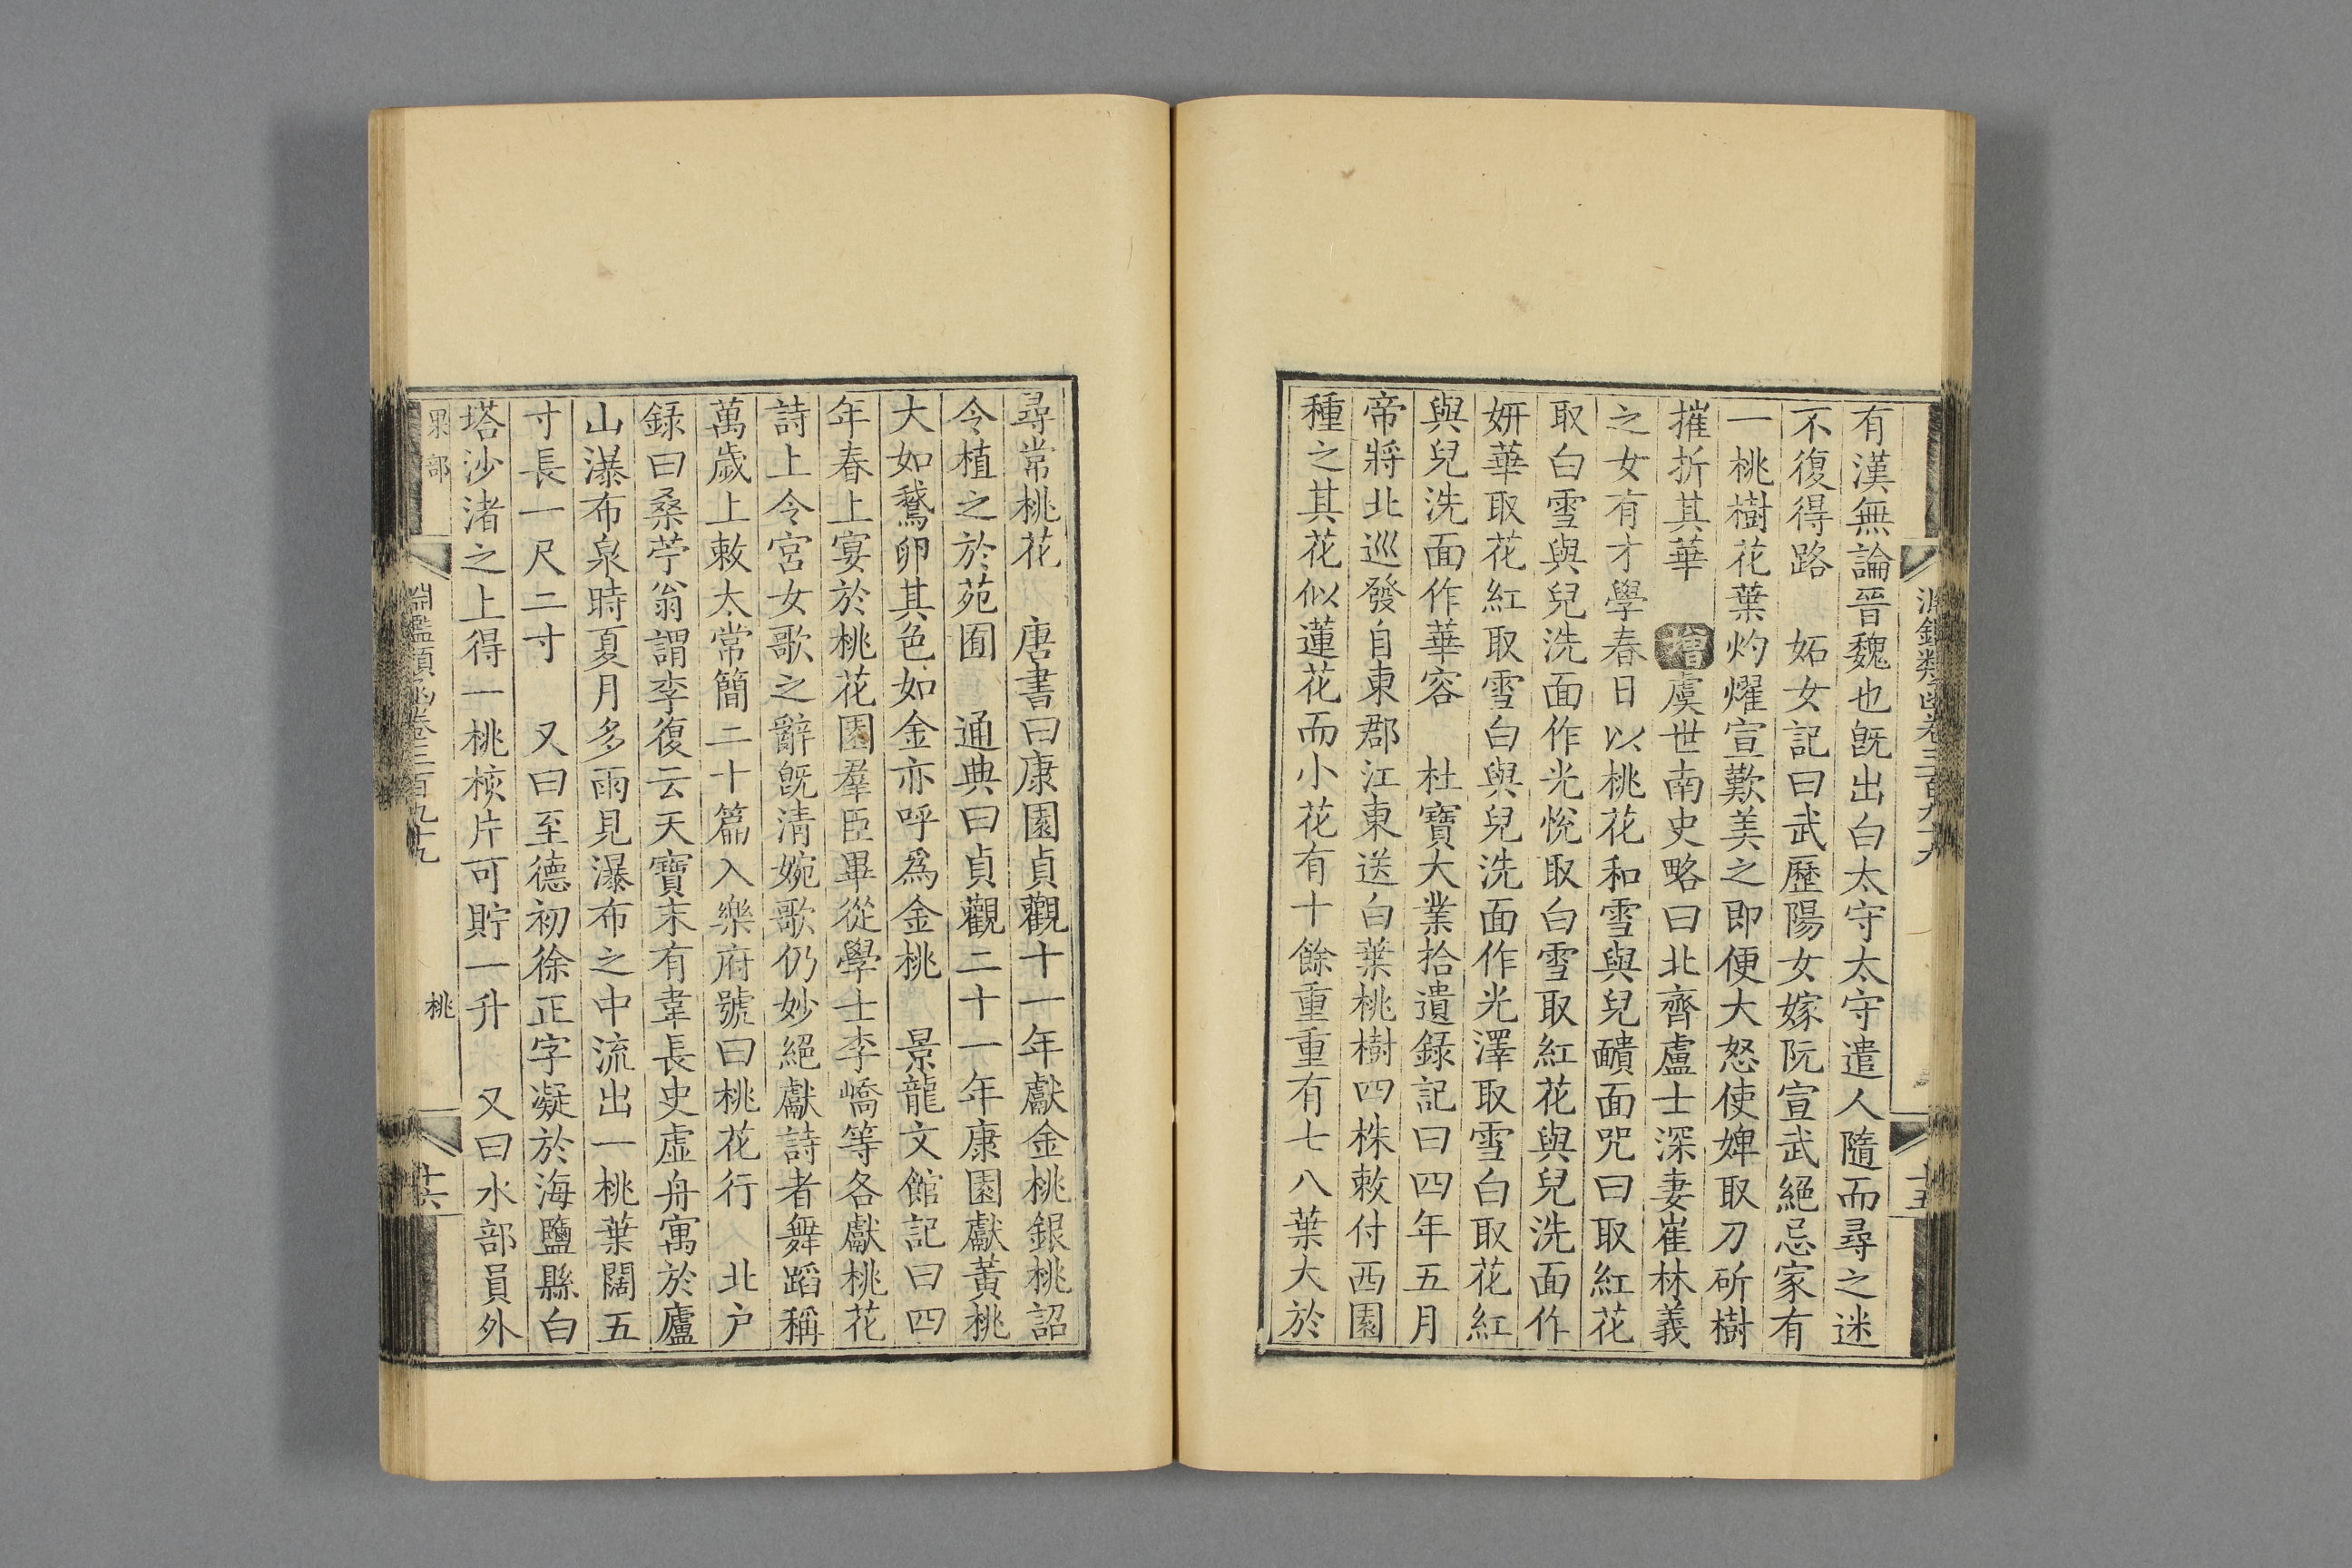 淵鑑類函卷三百九十九
十五
有漢無論晉魏也旣出白太守太守遣人隨而尋之迷
不復得路　妬女記曰武歷陽女嫁阮宣武絕忌家有
一桃樹花葉灼燿宣歎美之即便大怒使婢取刀斫樹
摧折其華　增虞世南史略曰北齊盧士深妻崔林義
之女有才學春日以桃花和雪與兒靧面咒曰取紅花
取白雪與兒洗面作光悅取白雪取紅花與兒洗面作
妍華取花紅取雪白與兒洗面作光澤取雪白取花紅
與兒洗面作華容　杜寶大業拾遺錄記曰四年五月
帝將北巡發自東郡江東送白葉桃樹四株敕付西園
種之其花似蓮花而小花有十餘重重有七八葉大於
尋常桃花　唐書曰康園貞觀十一年獻金桃銀桃詔
令植之於苑囿　通典曰貞觀二十一年康園獻黃桃
大如鵞卵其色如金亦呼爲金桃　景龍文館記曰四
年春上宴於桃花園羣臣畢從學士李嶠等各獻桃花
詩上令宮女歌之辭旣清婉歌仍妙絕獻詩者舞蹈稱
萬歲上敕太常簡二十篇入樂府號曰桃花行　北户
録曰桑苧翁謂李復云天寶末有韋長史虛舟寓於廬
山瀑布泉時夏月多雨見瀑布之中流出一桃葉闊五
寸長一尺二寸　又曰至德初徐正字凝於海鹽縣白
塔沙渚之上得一桃核片可貯一升　又曰水部員外
果部
淵鑑類函卷三百九十九
桃
十六